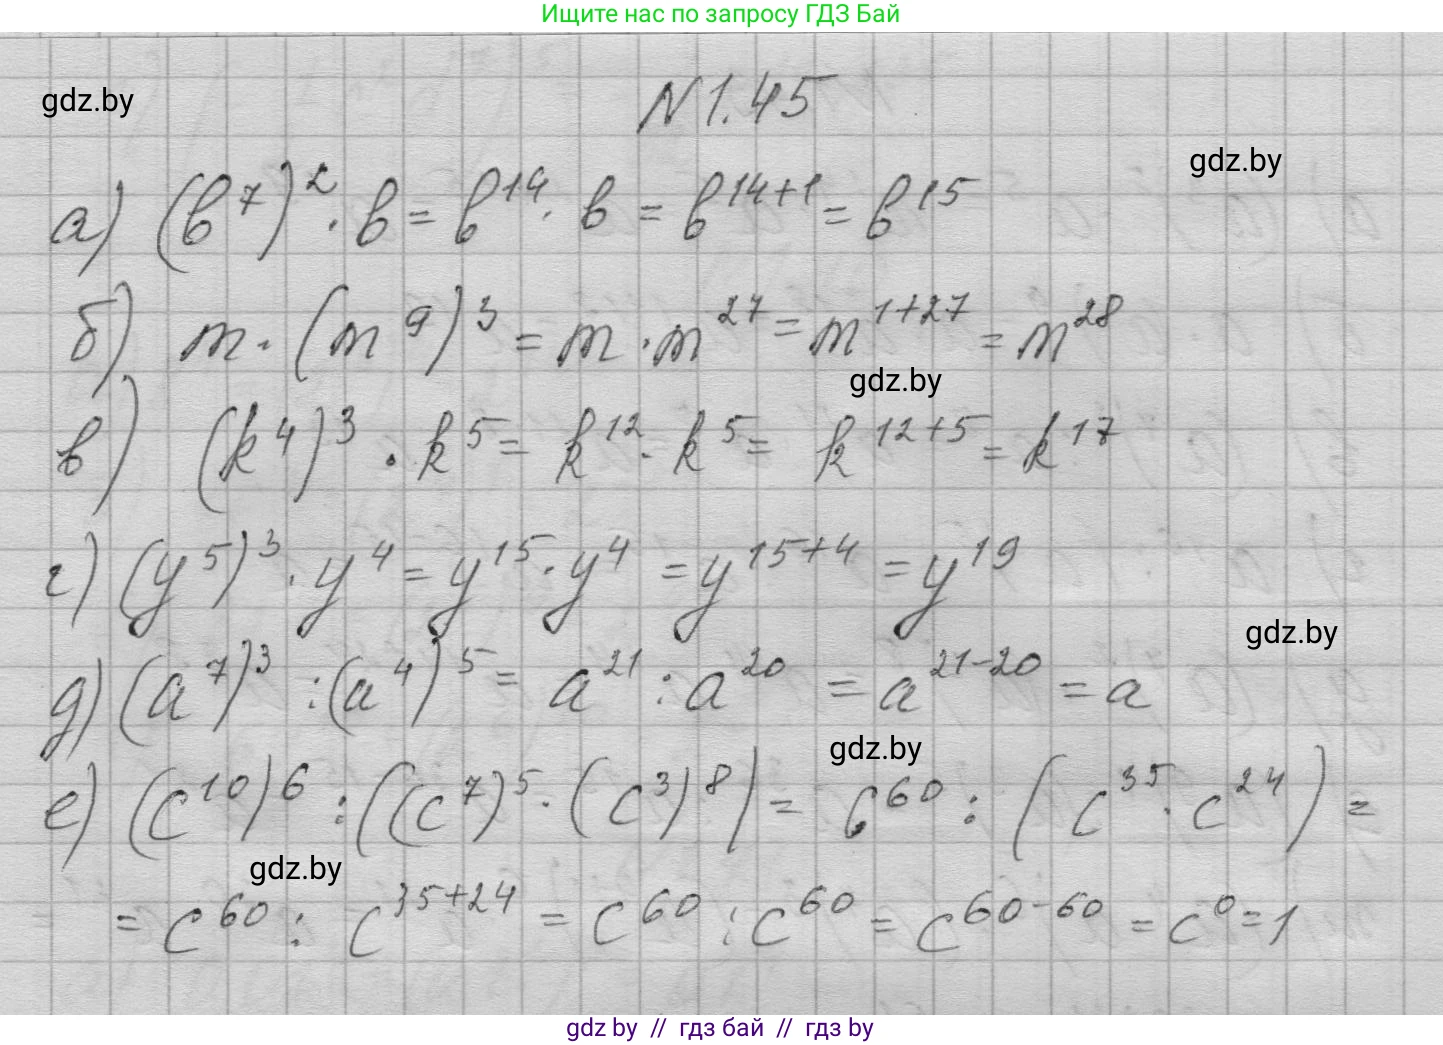 Ищите нас по запросу ГДЗ Бай
gdz.by
N 1.45
gdz.by
а) (b⁷)² · b = b¹⁴ · b = b¹⁴⁺¹ = b¹⁵
б) m · (m⁹)³ = m · m²⁷ = m¹⁺²⁷ = m²⁸
gdz.by
в) (k⁴)³ · k⁵ = k¹² · k⁵ = k¹²⁺⁵ = k¹⁷
г) (y⁵)³ · y⁴ = y¹⁵ · y⁴ = y¹⁵⁺⁴ = y¹⁹
gdz.by
д) (a⁷)³ : (a⁴)⁵ = a²¹ : a²⁰ = a²¹⁻²⁰ = a
gdz.by
е) (c¹⁰)⁶ : ((c⁷)⁵ · (c³)⁸) = c⁶⁰ : (c³⁵ · c²⁴) =
gdz.by
= c⁶⁰ : c³⁵⁺²⁴ = c⁶⁰ : c⁶⁰ = c⁶⁰⁻⁶⁰ = c⁰ = 1
gdz by // гдз бай // гдз by